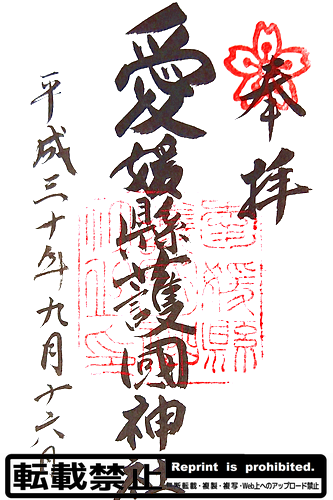 奉拝
愛媛縣護國神社
平成三十年九月十六日
転載禁止
Reprint is prohibited.
無断転載・複製・複写・Web上へのアップロード禁止